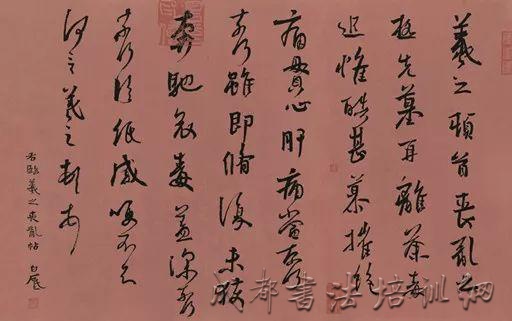 羲之頓首喪亂之
極先墓再離荼毒
追惟酷甚慕摧絕
痛貫心肝痛當奈何
奈何雖即脩復未獲
奔馳哀毒益深奈何
奈何臨紙感哽不知
何言羲之頓首
右臨羲之喪亂帖
成都書法培訓網